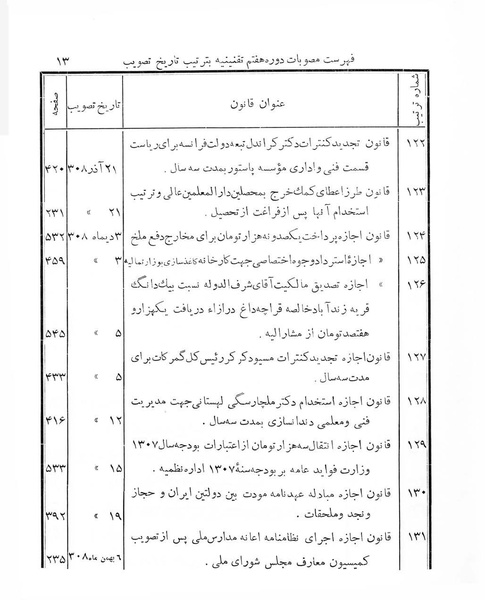 فهرست مصوبات دوره هفتم تقنینیه بترتیب تاریخ تصویب ۱۳
شماره ترتیب عنوان قانون تاریخ تصویب صفحه
۱۲۲ قانون تجدید کنترات دکتر کراندل تبعه دولت فرانسه برای ریاست
قسمت فنی و اداری مؤسسه پاستور بمدت سه سال . ۲۱ آذر ۳۰۸ ۴۲۰
۱۲۳ قانون طرز اعطای کمک خرج بمحصلین دارالمعلمین عالی و ترتیب
استخدام آنها پس از فراغت از تحصیل . ۲۱ » ۲۳۱
۱۲۴ قانون اجازه پرداخت یکصد و نه هزار تومان برای مخارج دفع ملخ ۳ دیماه ۳۰۸ ۵۳۲
۱۲۵ « اجازۀ استرداد وجوه اختصاصی جهت کارخانه کاغذسازی بوزارت مالیه ۳ » ۴۵۹
۱۲۶ « اجازه تصدیق مالکیت آقای شرف‌الدوله نسبت بیک دانگ
قریه زند آباد خالصه قراچه داغ در ازاء دریافت یکهزار و
هفتصد تومان از مشارالیه . ۵ » ۵۴۵
۱۲۷ قانون اجازه تجدید کنترات مسیو دکرکر رئیس کل گمرکات برای
مدت سه سال . ۵ » ۴۳۳
۱۲۸ قانون اجازه استخدام دکتر ملچارسگی لهستانی جهت مدیریت
فنی و معلمی دندانسازی بمدت سه سال . ۱۲ » ۴۱۶
۱۲۹ قانون اجازه انتقال سه هزار تومان از اعتبارات بودجه سال ۱۳۰۷
وزارت فواید عامه بر بودجه سنۀ ۱۳۰۷ اداره نظمیه . ۱۵ » ۵۳۳
۱۳۰ قانون اجازه مبادله عهدنامه مودت بین دولتین ایران و حجاز
و نجد و ملحقات . ۱۹ » ۳۹۲
۱۳۱ قانون اجازه اجرای نظامنامه اعانه مدارس ملی پس از تصویب
کمیسیون معارف مجلس شورای ملی . ۶ بهمن ماه ۳۰۸ ۲۳۵